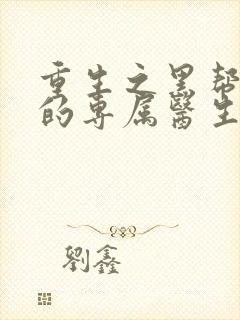 重生之黑帮
的专属醫生
劉鑫